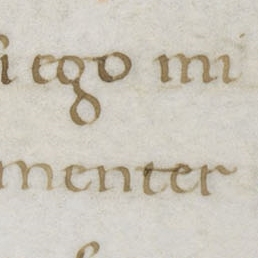 ego mi
menter